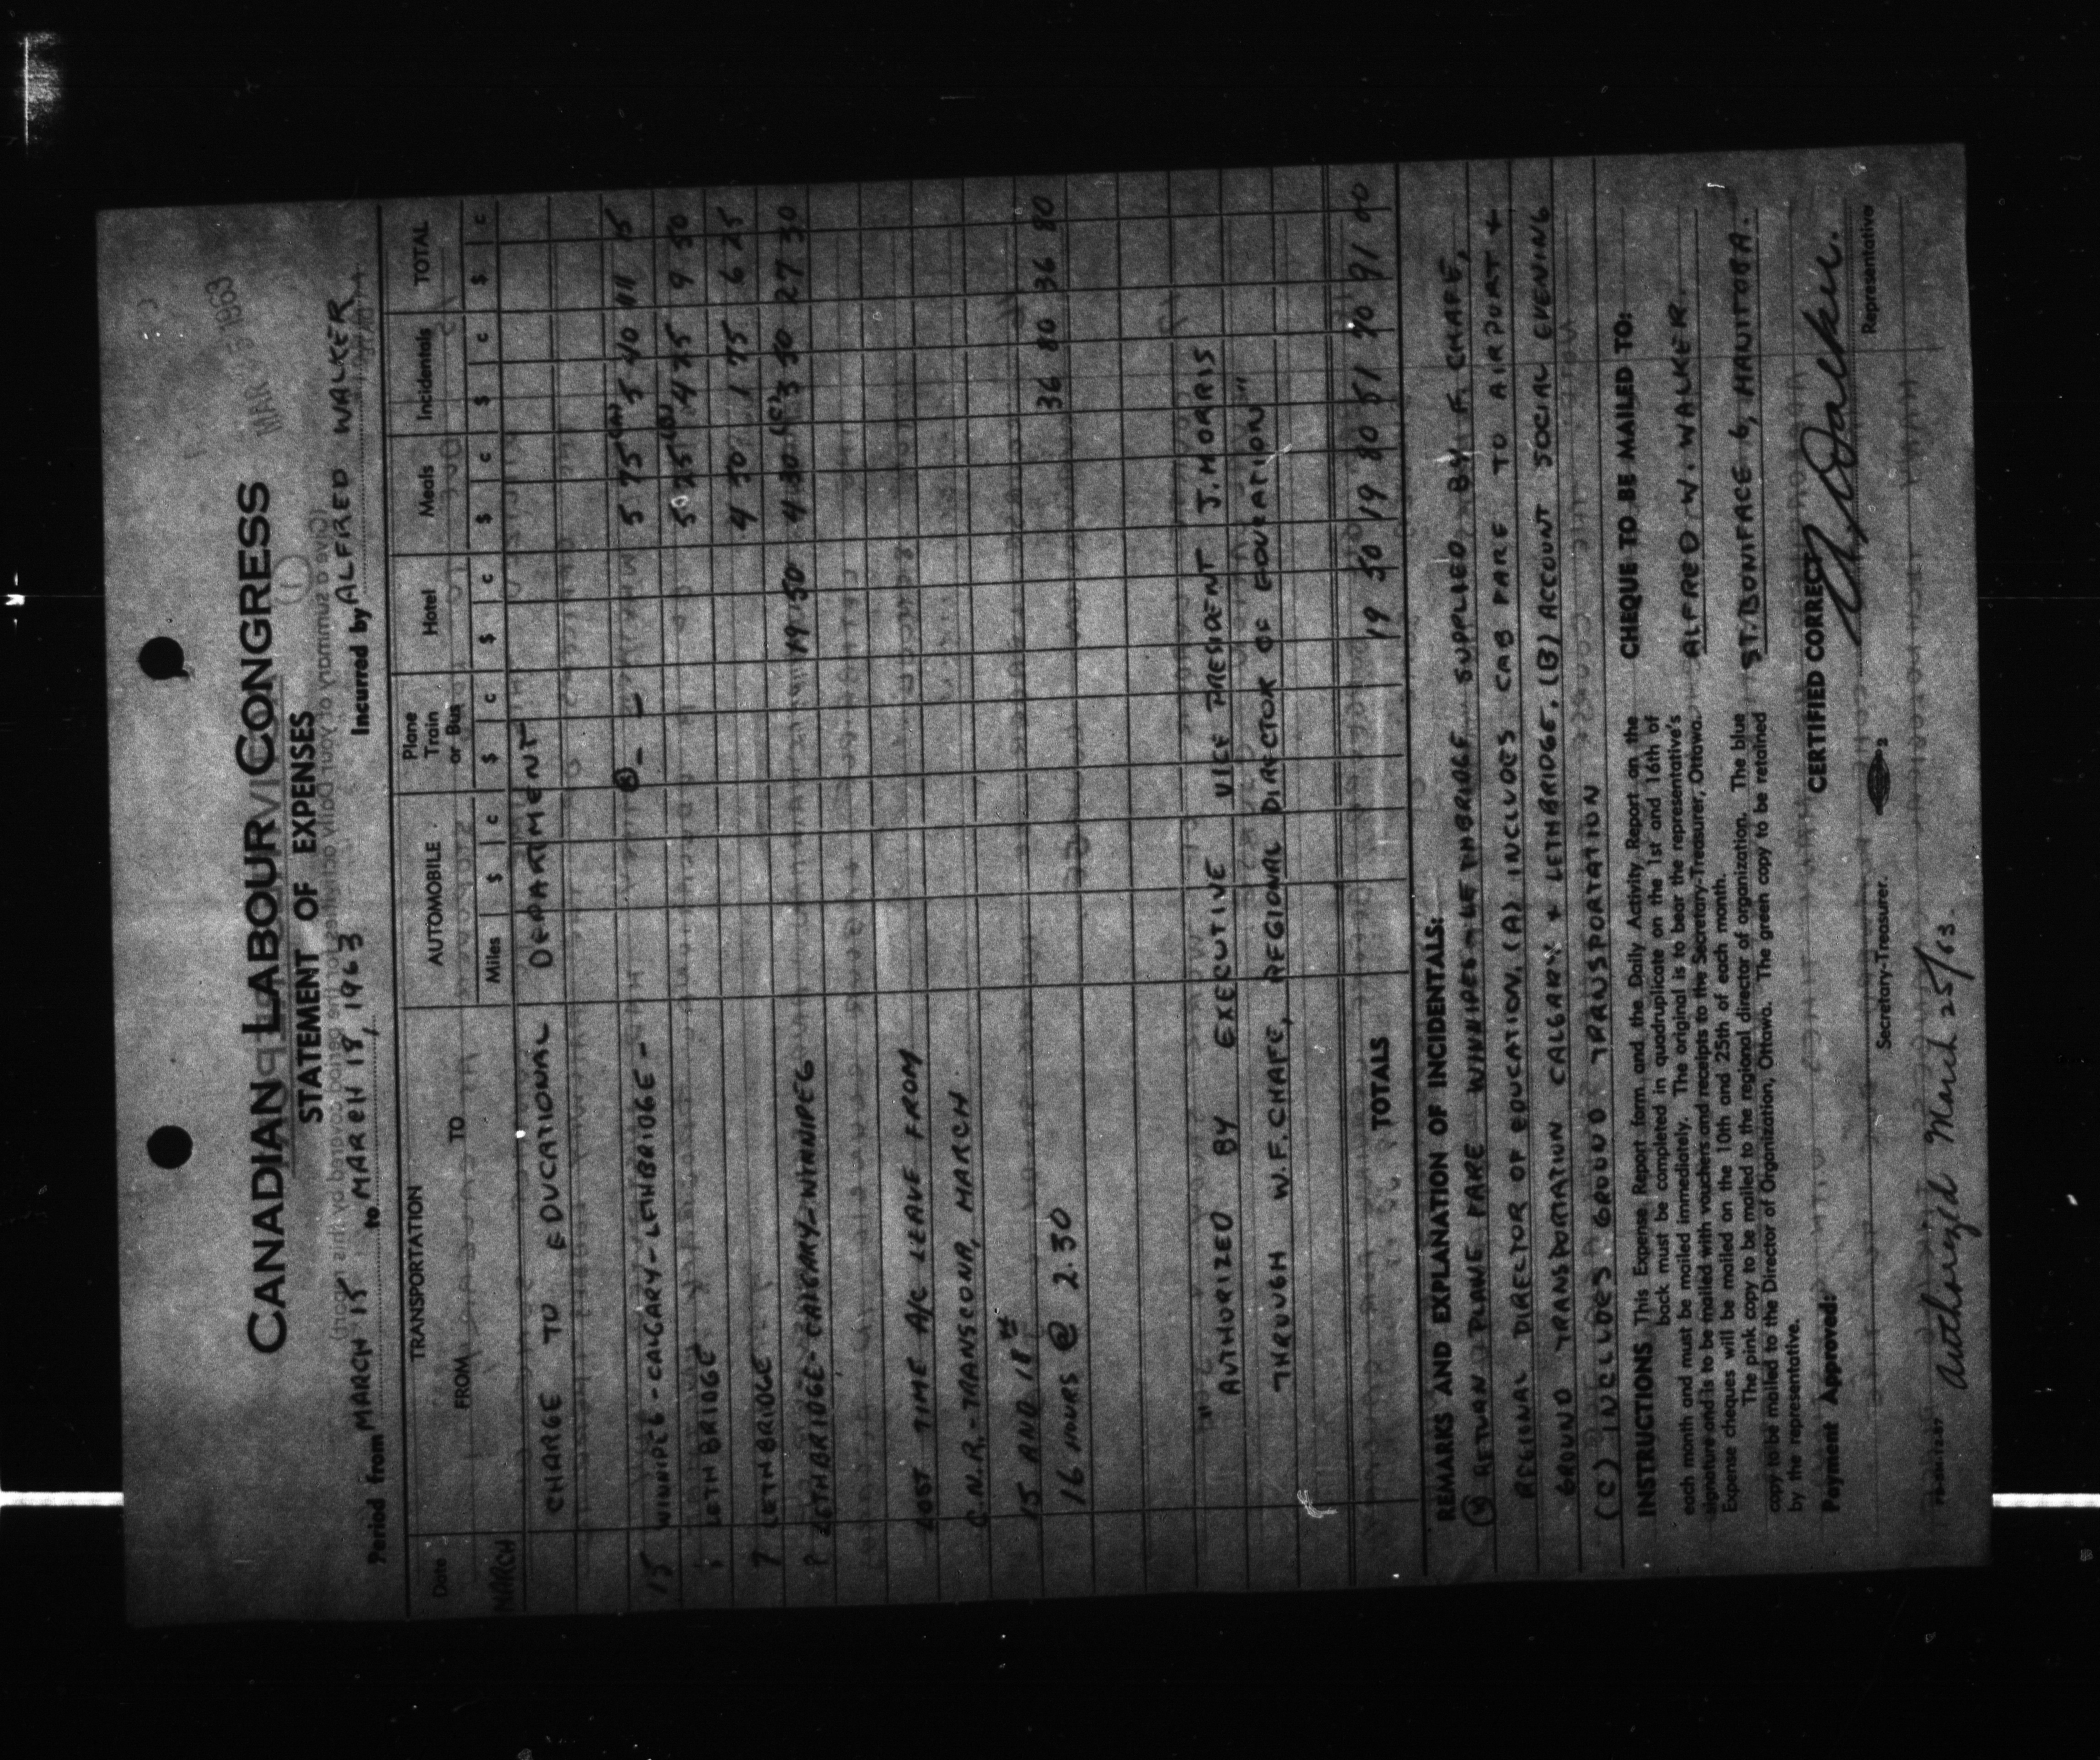 MAR 25 1963
CANADIAN LABOUR CONGRESS
STATEMENT OF EXPENSES
Period from MARCH 15 to MARCH 18, 1963 Incurred by ALFRED WALKER
Date TRANSPORTATION AUTOMOBILE Plane Train or Bus Hotel Meals Incidentals TOTAL
FROM TO Miles $ c $ c $ c $ c $ c $ c
MARCH
CHARGE TO EDUCATIONAL DEPARTMENT
15 WINNIPEG - CALGARY - LETHBRIDGE - - - 5 75 (A) 5 40 11 15
LETHBRIDGE 5 25 (B) 4 25 9 50
LETHBRIDGE 4 50 1 75 6 25
LETHBRIDGE - CALGARY - WINNIPEG 19 50 4 30 (C) 3 50 27 30
LOST TIME A/C LEAVE FROM
C.N.R. - TRANSCONA, MARCH
15 AND 18th
16 HOURS @ 2.30 36 80 36 80
"AUTHORIZED BY EXECUTIVE VICE PRESIDENT J. MORRIS
THROUGH W.F. CHAFE, REGIONAL DIRECTOR OF EDUCATION"
TOTALS 19 50 19 80 51 70 91 00
REMARKS AND EXPLANATION OF INCIDENTALS:
RETURN PLANE FARE WINNIPEG - LETHBRIDGE SUPPLIED BY F. CHAFE,
REGINAL DIRECTOR OF EDUCATION. (A) INCLUDES CAB FARE TO AIRPORT +
GROUND TRANSPORTATION CALGARY + LETHBRIDGE. (B) ACCOUNT SOCIAL EVENING
(C) INCLUDES GROUND TRANSPORTATION
INSTRUCTIONS This Expense Report form and the Daily Activity Report on the
back must be completed in quadruplicate on the 1st and 16th of
each month and must be mailed immediately. The original is to bear the representative's
signature and is to be mailed with vouchers and receipts to the Secretary-Treasurer, Ottawa.
Expense cheques will be mailed on the 10th and 25th of each month.
The pink copy to be mailed to the regional director of organization. The blue
copy to be mailed to the Director of Organization, Ottawa. The green copy to be retained
by the representative.
CHEQUE TO BE MAILED TO:
ALFRED W. WALKER
ST. BONIFACE 6, MANITOBA.
Payment Approved:
CERTIFIED CORRECT
A. Walker.
Secretary-Treasurer.
Representative
Authorized March 25/63.